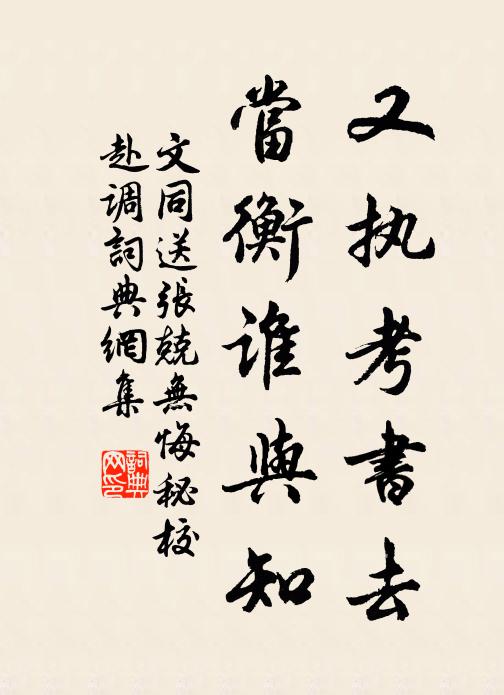 又执考書去
當衡谁與知
文同送張兢無悔秘校
赴调詞典網集
詞典網印